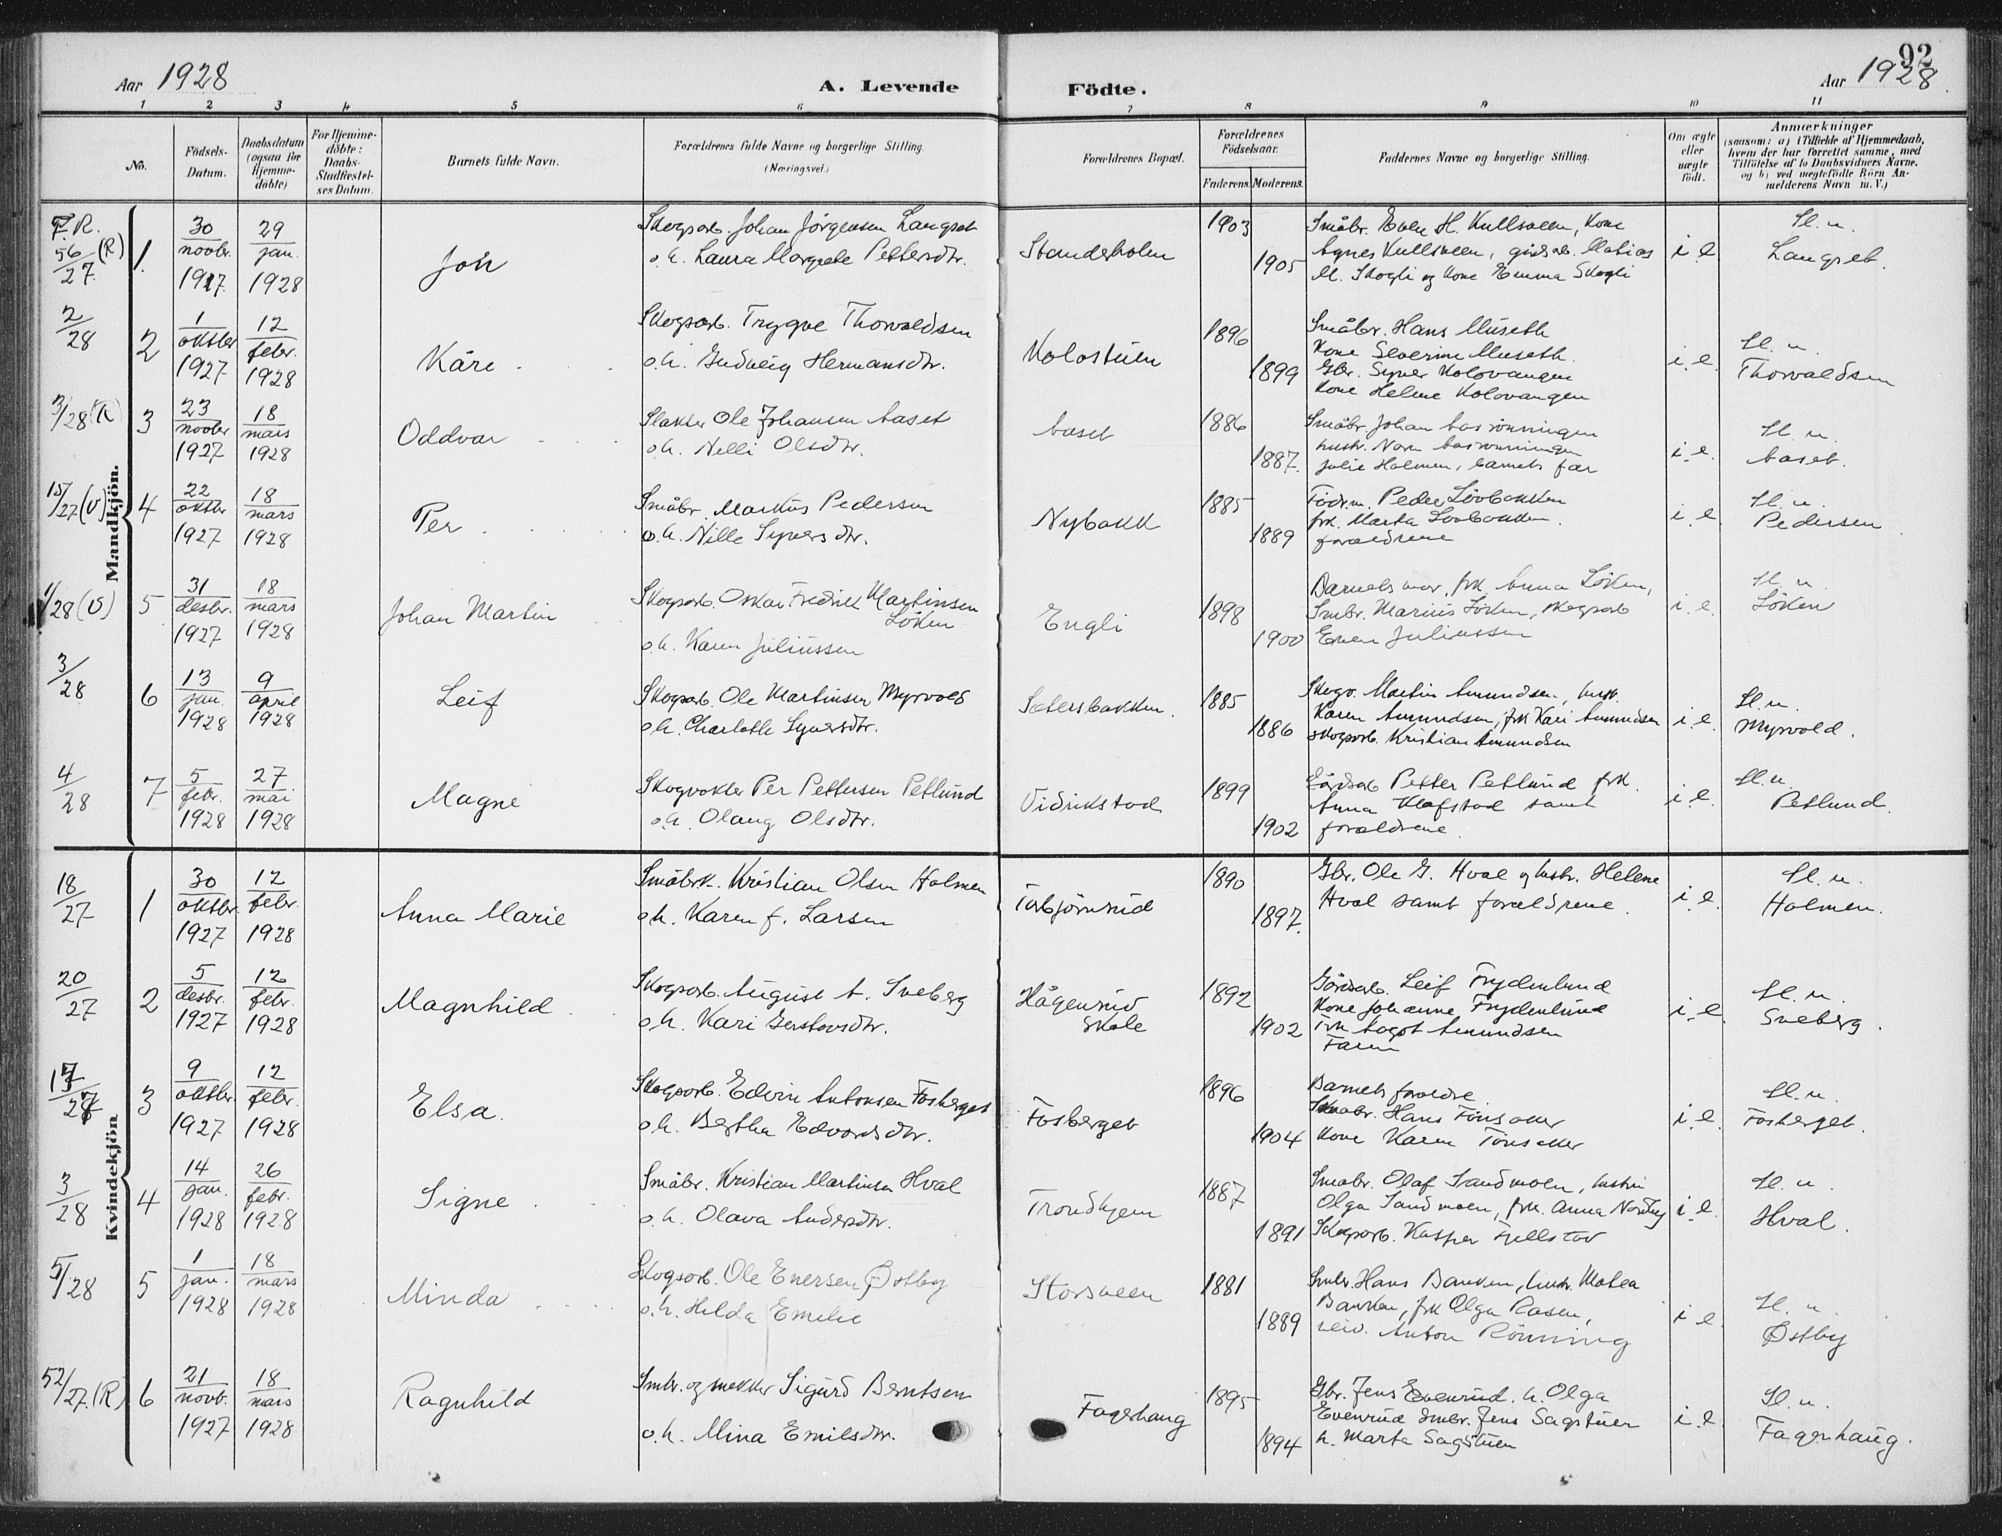 Aar 1928
A. Levende
Födte.
92
Aar 1928
1 2 3 4 5 6 7 8 9 10 11
No.
Födsels-
Datum.
Daabsdatum
(ogsaa for
Hjemme-
döbte)
For Hjemme-
döbte:
Daabs-
Stadfæstel-
ses Datum.
Barnets fulde Navn.
Forældrenes fulde Navne og borgerlige Stilling
(Næringsvei)
Forældrenes Bopæl.
Forældrenes
Födselsaar.
Faderens. Moderens.
Faddernes Navne og borgerlige Stilling.
Om ægte
eller
uægte
födt.
Anmærkninger
(saasom: a) i Tilfælde af Hjemmedaab,
hvem der har forrettet samme, med
Tilföielse af to Daabsvidners Navne.
og b) ved uægtefödte Börn An-
melderens Navn m. V.)
Mandkjön.
F.R.
56/27 (R)
1. 30 novbr. 1927. 29 jan. 1928
Joh
Skogsarb. Johan Jörgensen Langset
o.h. Laura Margrete Pettersdtr.
Standerholen
1903
1905
Småbr. Even H. Kullsveen, Kone
Agnes Kullsveen, gårdarb. Matias
M. Skogli og kone Emma Skogli
i e
H. u.
Langset.
2/28
2 1 oktbr 1927 12 febr. 1928
Kåre
Skogsarb. Trygve Thorvaldsen
o.h. Gudveig Hermansdtr.
Kolostuen
1896
1899
Småbr. Hans Museth
Kone Severine Museth.
Gbr. Syver Kolovangen
Kone Helene Kolovangen
i. e.
H. u.
Thorvaldsen
3/28 (R)
3 23 novbr 1927 18 mars 1928
Oddvar
Slakter Ole Johansen Aaset
o.h. Nilli Olsdtr.
Aaset
1886
1887.
Småbr. Johan Aasrönningen
hustr. Aasrönningen
Julie Holmen, barnets far
i. e.
H. u.
Aaset.
15/27 (U)
4 22 oktbr 1927 18 mars 1928
Per
Småbr. Markus Pedersen
o.h. Nille Syversdtr.
Nybakk
1885
1889
Peder Lövbakken
frk. Marta Lövbakken.
forældrene
i. e.
H. u.
Pedersen
1/28 (U)
5 31 desbr. 1927 18 mars 1928
Johan Martin
Skogsarb. Oskar Fredrik Martinsen
Löken
o.h. Karen Juliussen
Engli
1898
1900
Barnets mor, frk. Anna Löken,
Smbr. Marius Löken, skogsarb
Even Juliussen
i. e.
H. u.
Löken
3/28
6 13 jan. 1928 9 april 1928
Leif
Skogsarb. Ole Martinsen Myrvold
o.h. Charlotte Syversdtr.
Setersbakken.
1885
1886
Skogv. Martin Amundsen, hust.
Karen Amundsen, frk Kari Amundsen
skogsarb. Kristian Amundsen
i. e.
H. u.
Myrvold.
4/28
7 5 febr. 1928 27 mai 1928
Magne
Skogvokter Per Pettersen Petlund
o.h. Olaug Olsdtr.
Vidrikstad
1899
1902
Gårdsarb Petter Petlund frk.
Anna Klafstad samt
forældrene.
i e.
H. u.
Petlund.
Kvindekjön
18/27
1 30 oktbr. 1927 12 febr. 1928
Anna Marie
Småbrk. Kristian Olsen Holmen
o.h. Karen f. Larsen
Torbjörnsrud
1890
1897.
Gbr. Ole G. Hval og hustr. Helene
Hval samt forældrene.
i. e.
H. u.
Holmen.
20/27
2 5 desbr. 1927 12 febr. 1928
Magnhild
Skogsarb. August A. Sveberg
o.h. Kari Gerstovsdtr.
Hågensrud
Skole
1892
1902
Gårdarb. Leif Frydenlund
Kone Johanne Frydenlund
Frk Aagot Amundsen
Faren
i. e.
H. u.
Sveberg.
17/27
3 9 oktbr. 1927 12 febr. 1928
Elsa.
Skogsarb. Edvin Antonsen Fosberget
o.h. Bertha Edvardsdtr.
Fosberget
1896
1904
Barnets foreldre.
Småbr. Hans Tönsaker
Kone Karen Tönsaker
i. e.
H. u.
Fosberget.
3/28
4 14 jan. 1928 26 febr. 1928
Signe
Småbr. Kristian Martinsen Hval
o.h. Olava Andersdtr.
Trondhjem
1887
1891
Småbr. Olaf Sandmoen, hustru
Olga Sandmoen, frk. Anna Nordby
Skogsarb. Kasper Fjellstad
i. e.
H. u.
Hval.
5/28
5 1 jan. 1928 18 mars 1928
Minda
Skogsarb. Ole Enersen Østby
o.h. Hilda Emelie
Storsveen
1881
1889
Smbr. Hans Banken, hustr. Matea
Banken, frk Olga Rasen,
Anton Rönning
i e.
H. u.
Østby
52/27. (R)
6 21 novb. 1927 18 mars 1928
Ragnhild
Smbr. og snekker Sigurd Berntsen
o.h. Mina Emilsdtr.
Fagerhaug
1895
1894
Gbr. Jens Evenrud. h. Olga
Evenrud Smbr. Jens Sagstuen
h. Marta Sagstuen
i e.
H. u.
Fagerhaug.